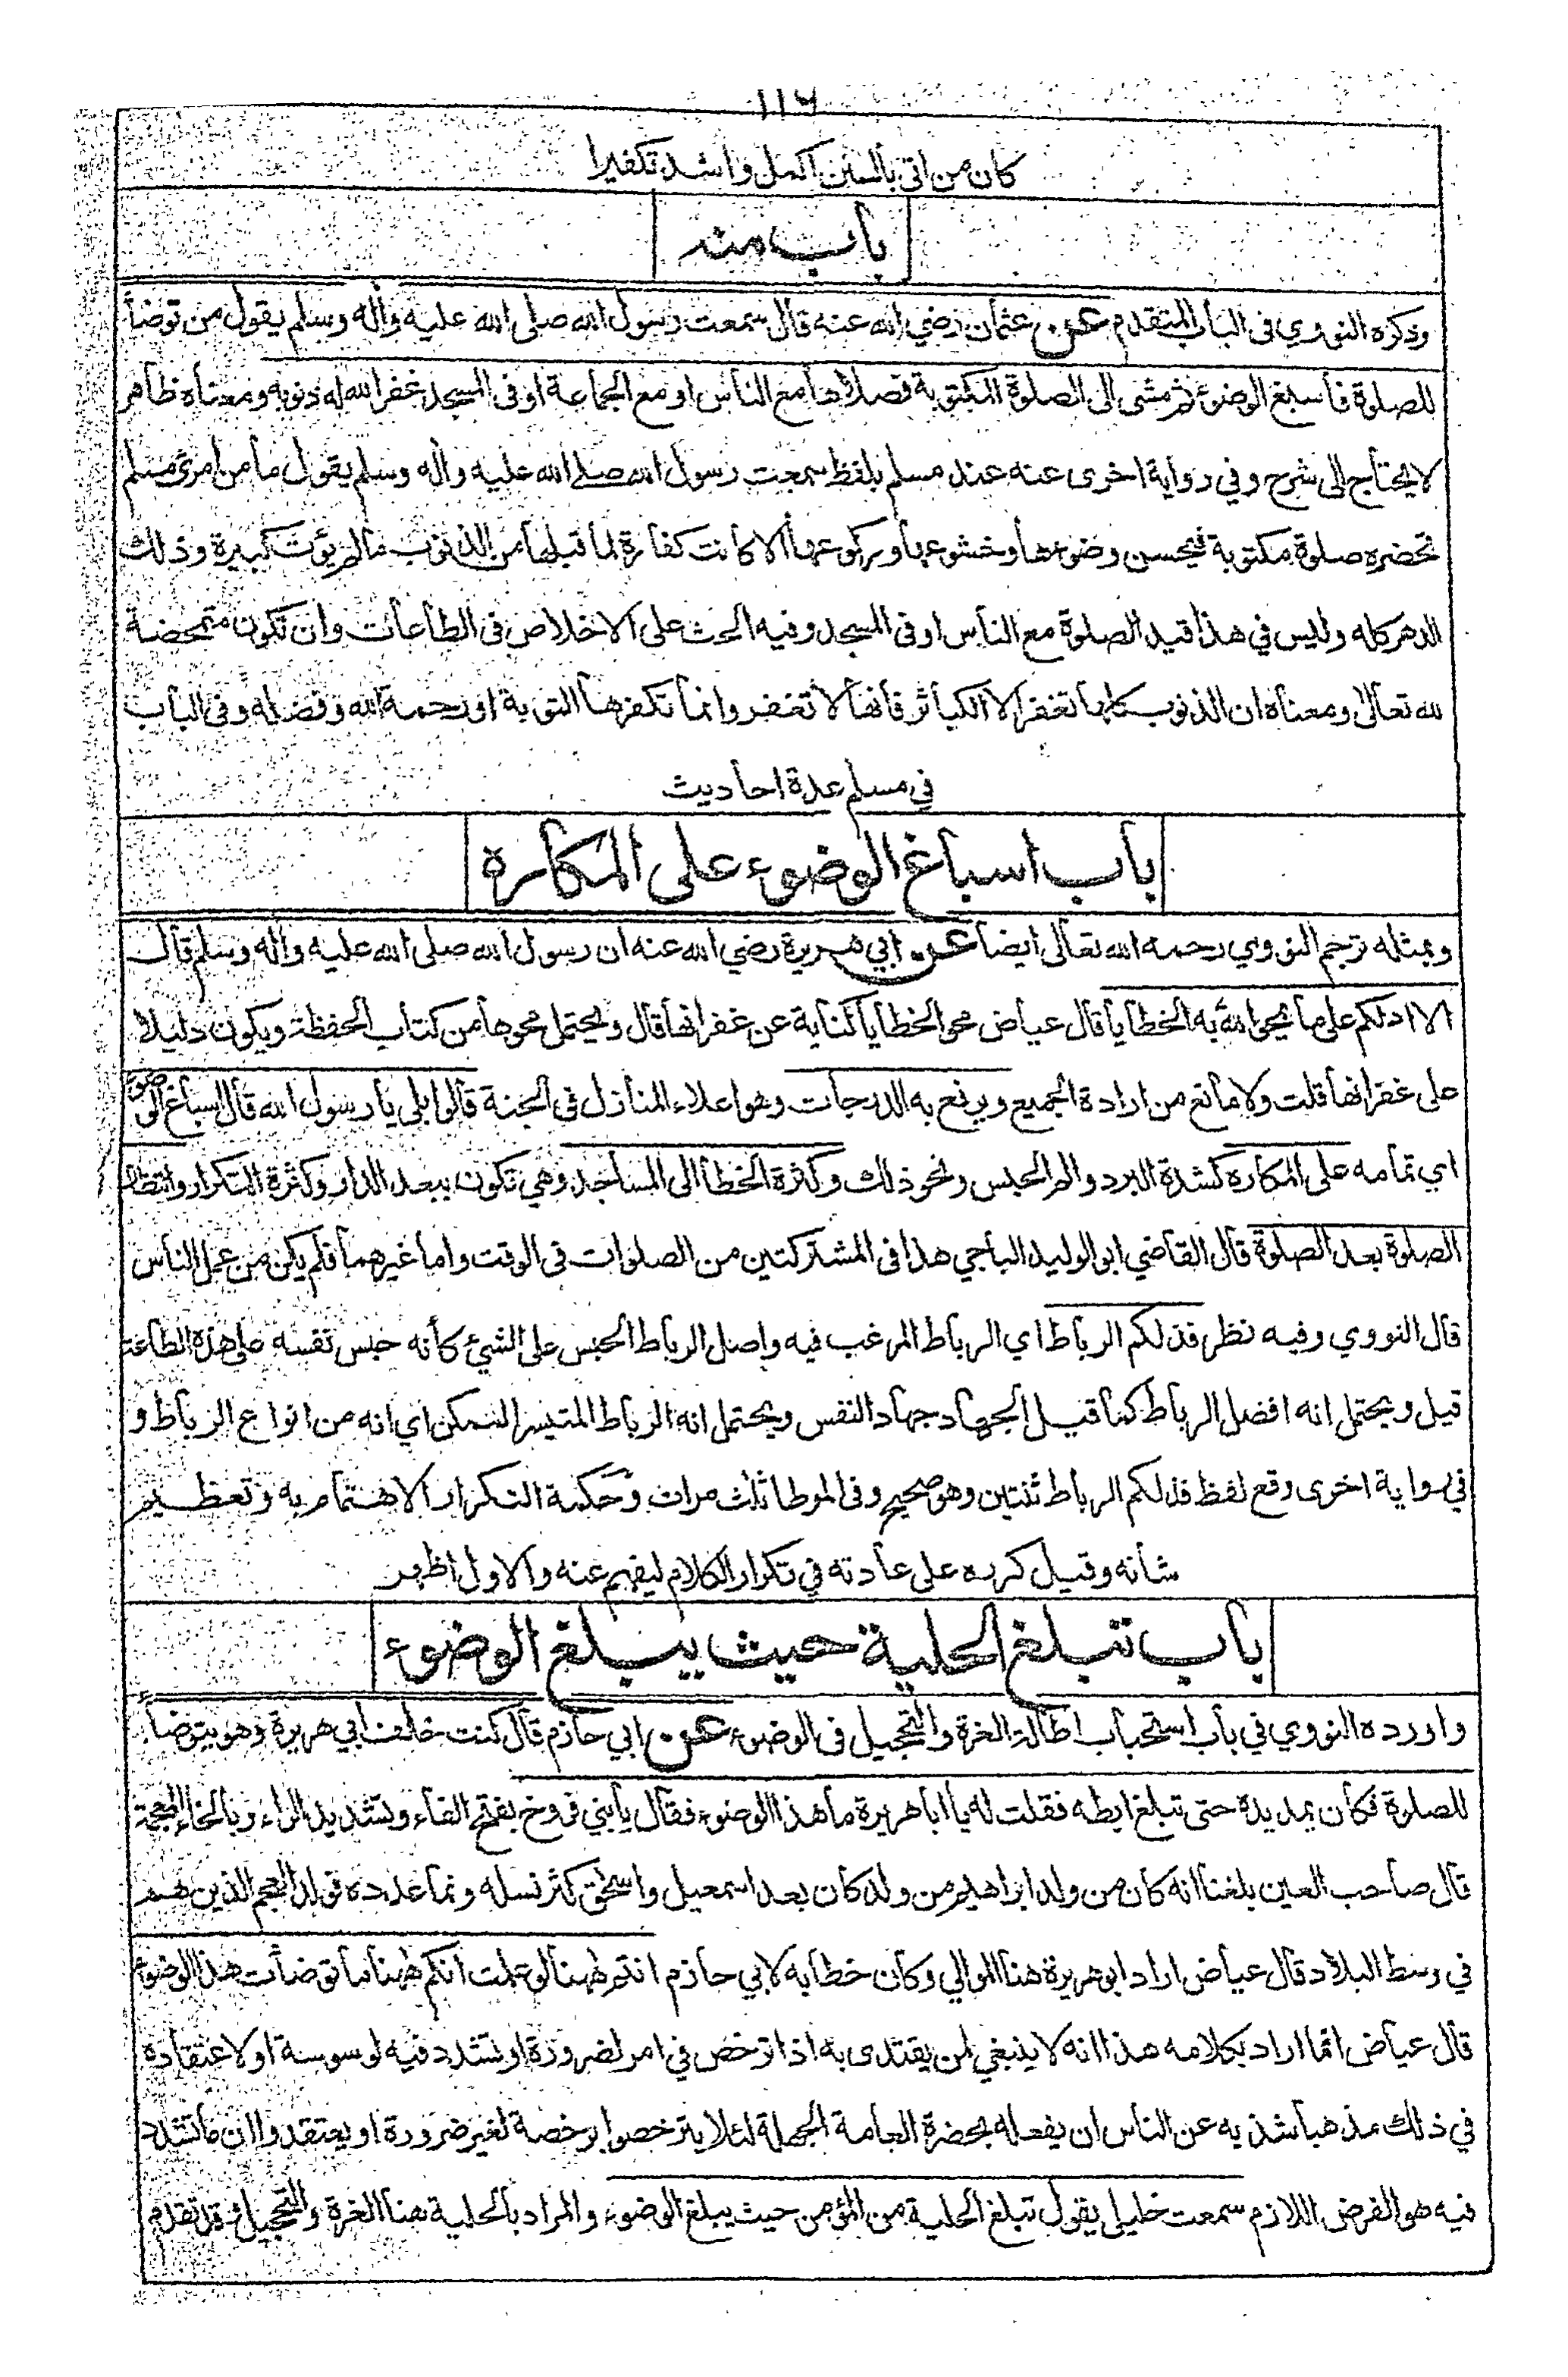 ١١٦
كان من اتى بالسنن اكمل واشد تكفيرا
باب منه
وذكره النووي فى الباب المتقدم عن عثمان رضي الله عنه قال سمعت رسول الله صلى الله عليه واله وسلم يقول من توضأ
للصلوة فاسبغ الوضوء ثم مشى الى الصلوة المكتوبة فصلاها مع الناس او مع الجماعة او فى المسجد غفر الله له ذنوبه ومعناه ظاهر
لا يحتاج الى شرح وفي رواية اخرى عنه عند مسلم بلفظ سمعت رسول الله صلے الله عليه واله وسلم يقول ما من امرئ مسلم
تحضره صلوة مكتوبة فيحسن وضوءها وخشوعها وركوعها الا كانت كفارة لما قبلها من الذنوب ما لم يؤت كبيرة وذلك
الدهر كله وليس في هذا قيد الصلوة مع الناس او فى المسجد وفيه الحث على الاخلاص فى الطاعات وان تكون متمحضة
لله تعالى ومعناه ان الذنوب كلها تغفر الا الكبائر فانها لا تغفر وانما تكفرها التوبة او رحمة الله وفضله وفى الباب
في مسلم عدة احاديث
باب اسباغ الوضوء على المكاره
وبمثله ترجم النووي رحمه الله تعالى ايضا عن ابي هريرة رضي الله عنه ان رسول الله صلى الله عليه واله وسلم قال
الا ادلكم على ما يمحى الله به الخطايا قال عياض محو الخطايا كناية عن غفرانها قال ويحتمل محوها من كتاب الحفظة ويكون دليلا
على غفرانها قلت ولا مانع من ارادة الجميع ويرفع به الدرجات وهو اعلاء المنازل فى الجنة قالوا بلى يا رسول الله قال اسباغ الوضوء
اي تمامه على المكاره كشدة البرد والم الجسم ونحو ذلك وكثرة الخطا الى المساجد وهي تكون ببعد الدار وكثرة التكرار وانتظار
الصلوة بعد الصلوة قال القاضي ابو الوليد الباجي هذا فى المشتركتين من الصلوات فى الوقت واما غيرهما فلم يكن من عمل الناس
قال النووي وفيه نظر فذلكم الرباط اي الرباط المرغب فيه واصل الرباط الحبس على الشيئ كأنه حبس نفسه على هذه الطاعة
قيل ويحتمل انه افضل الرباط كما قيل الجهاد جهاد النفس ويحتمل انه الرباط المتيسر الممكن اي انه من انواع الرباط و
في رواية اخرى وقع لفظ فذلكم الرباط ثنتين وهو صحيح وفى الموطا ثلث مرات وحكمة التكرار الاهتمام به وتعظيم
شأنه وقيل كرره على عادته في تكرار الكلام ليفهم عنه والاول اظهر
باب تبلغ الحلية حيث يبلغ الوضوء
واورده النووي في باب استحباب اطالة الغرة والتحجيل فى الوضوء عن ابي حازم قال كنت خلف ابي هريرة وهو يتوضأ
للصلوة فكان يمد يده حتى تبلغ ابطه فقلت له يا ابا هريرة ما هذا الوضوء فقال يا بني فروخ بفتح الفاء وتشديد الراء وبالخاء المعجمة
قال صاحب العين بلغنا انه كان من ولد ابراهيم من ولد كان بعد اسمعيل واسحق كثر نسله ونما عدده فولد العجم الذين هم
في وسط البلاد قال عياض اراد ابو هريرة هنا الموالي وكان خطابه لابي حازم انتم ههنا لو علمت انكم ههنا ما توضأت هذا الوضوء
قال عياض انما اراد بكلامه هذا انه لا ينبغي لمن يقتدى به اذا ترخص في امر لضرورة او تشدد فيه لوسوسة او لاعتقاده
في ذلك مذهبا شذ به عن الناس ان يفعله بحضرة العامة الجهلة لئلا يترخصوا برخصة لغير ضرورة او يعتقدوا ان ما تشدد
فيه هو الفرض اللازم سمعت خليلي يقول تبلغ الحلية من المؤمن حيث يبلغ الوضوء والمراد بالحلية هنا الغرة والتحجيل وقد تقدم